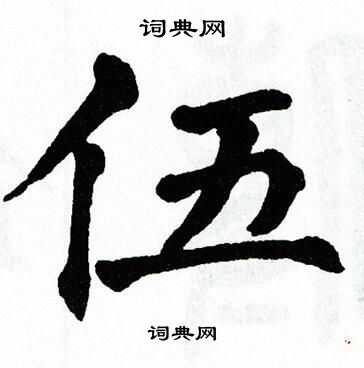 词典网
伍
词典网